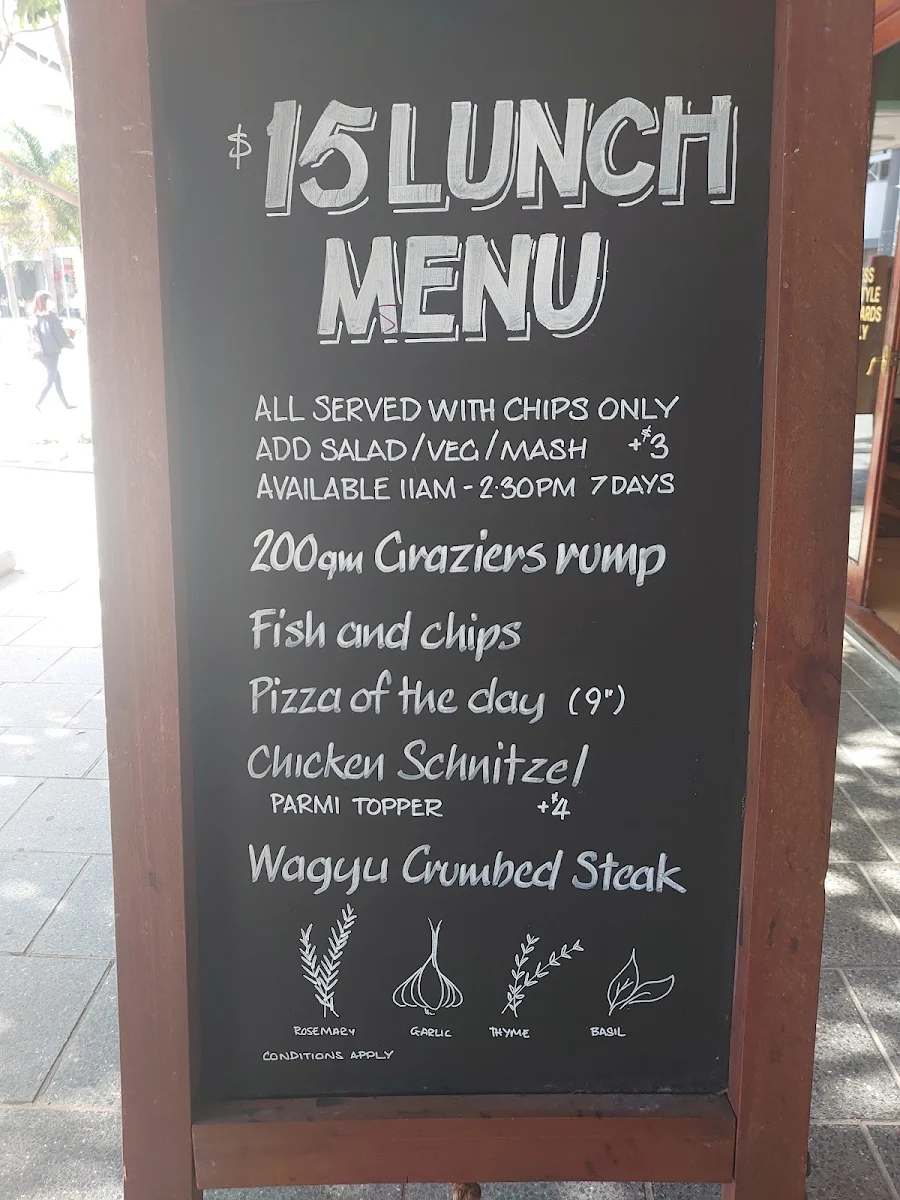 $15 LUNCH
MENU
ALL SERVED WITH CHIPS ONLY
ADD SALAD/VEG/MASH +$3
AVAILABLE 11AM - 2·30PM 7 DAYS
200gm Graziers rump
Fish and chips
Pizza of the day (9")
Chicken Schnitzel
PARMI TOPPER +$4
Wagyu Crumbed Steak
ROSEMARY GARLIC THYME BASIL
CONDITIONS APPLY